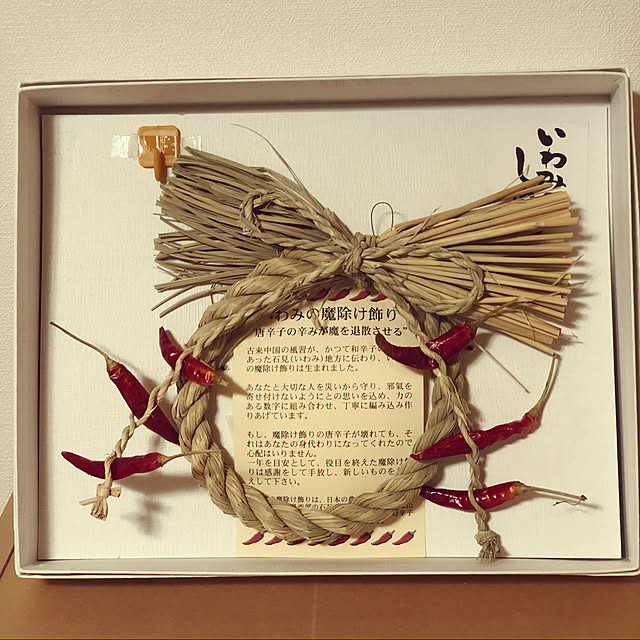 いわみ
し
わみの魔除け飾り
唐辛子の辛みが魔を退散させる”
古来中国の風習が、かつて和辛子
あった石見(いわみ)地方に伝わり、い
の魔除け飾りは生まれました。
あなたと大切な人を災いから守り、邪氣を
寄せ付けないようにとの思いを込め、力の
ある数字に組み合わせ、丁寧に編み込み作
りあげています。
もし、魔除け飾りの唐辛子が壊れても、そ
れはあなたの身代わりになってくれたので
心配はいりません。
一年を目安として、役目を終えた魔除け
りは感謝をして手放し、新しいものを
えして下さい。
の魔除け飾りは、日本の